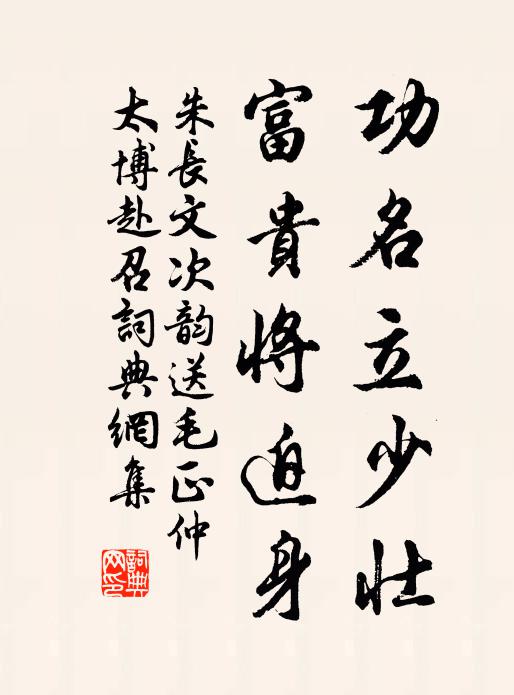 功名立少壯
富貴將迫身
朱長文次韵送毛正仲
太博赴召詞典網集
詞典
网印